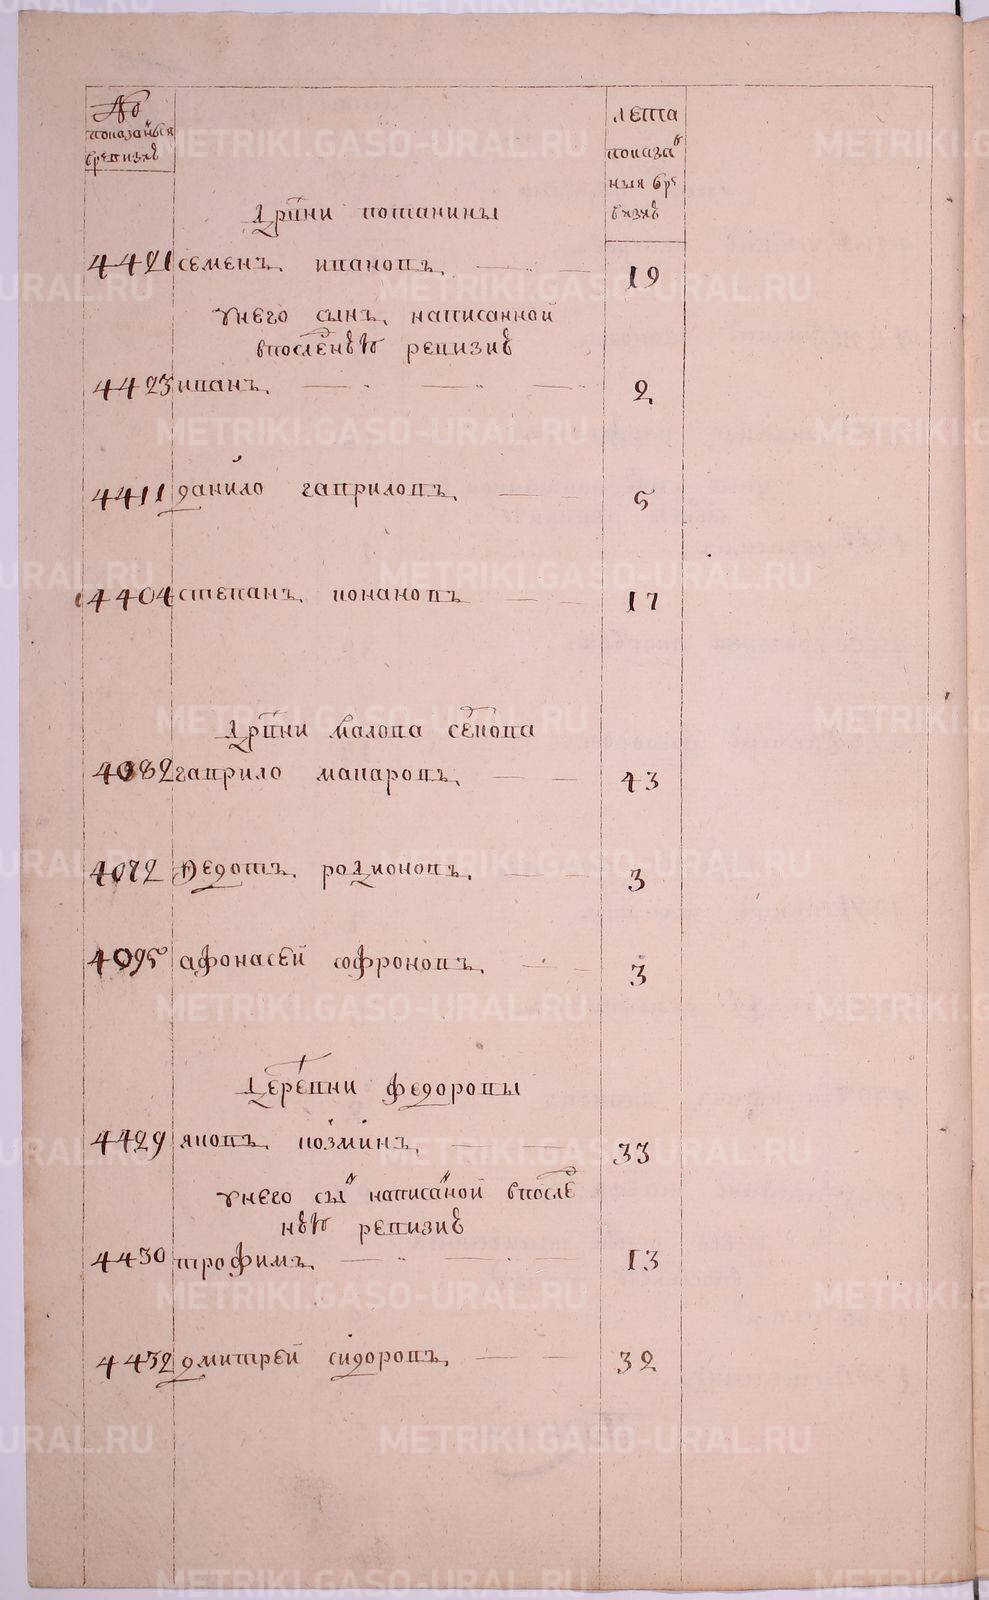 №
показанныя
вревизиѣ
лета
показа
ныя вре
визиѣ
дрвни потанины
4421 семенъ ивановъ 19
унего сынъ написанной
впослѣднѣй ревизиѣ
4423 иванъ 2
4411 данило гавриловъ 5
4404 степанъ конановъ 17
дрвни малова
4082 гаврило макаровъ 43
4072 Федотъ родионовъ 3
4095 афонасей софроновъ 3
деревни федоровы
4429 яковъ козминъ 33
унего сынъ написаной впосле
нѣй ревизиѣ
4430 трофимъ 13
4432 дмитрей сидоровъ 32
METRIKI.GASO-URAL.RU